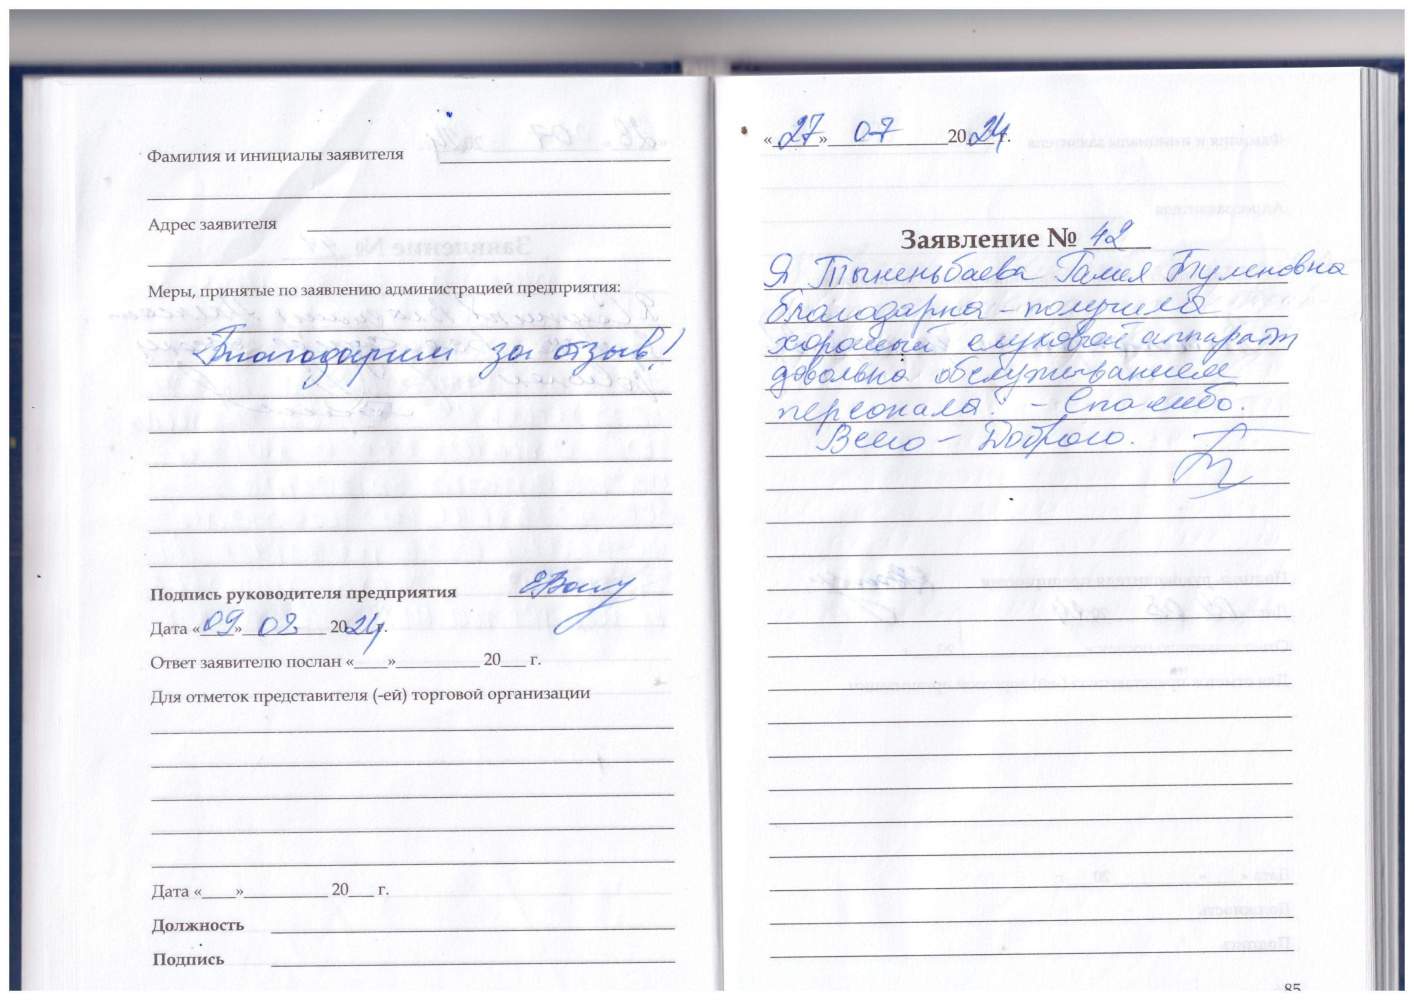 Фамилия и инициалы заявителя
Адрес заявителя
Меры, принятые по заявлению администрацией предприятия:
Благодарим за отзыв!
Подпись руководителя предприятия
Дата «09» 08 2024г.
Ответ заявителю послан «____»__________ 20___ г.
Для отметок представителя (-ей) торговой организации
Дата «____»__________ 20___ г.
Должность
Подпись
«27» 07 2024г.
Заявление № 42
Я Тыненьбаева Галия Буленовна
благодарна – получила
хороший слуховой аппарат
довольна обслуживанием
персонала. – Спасибо.
Всего – Доброго.
85